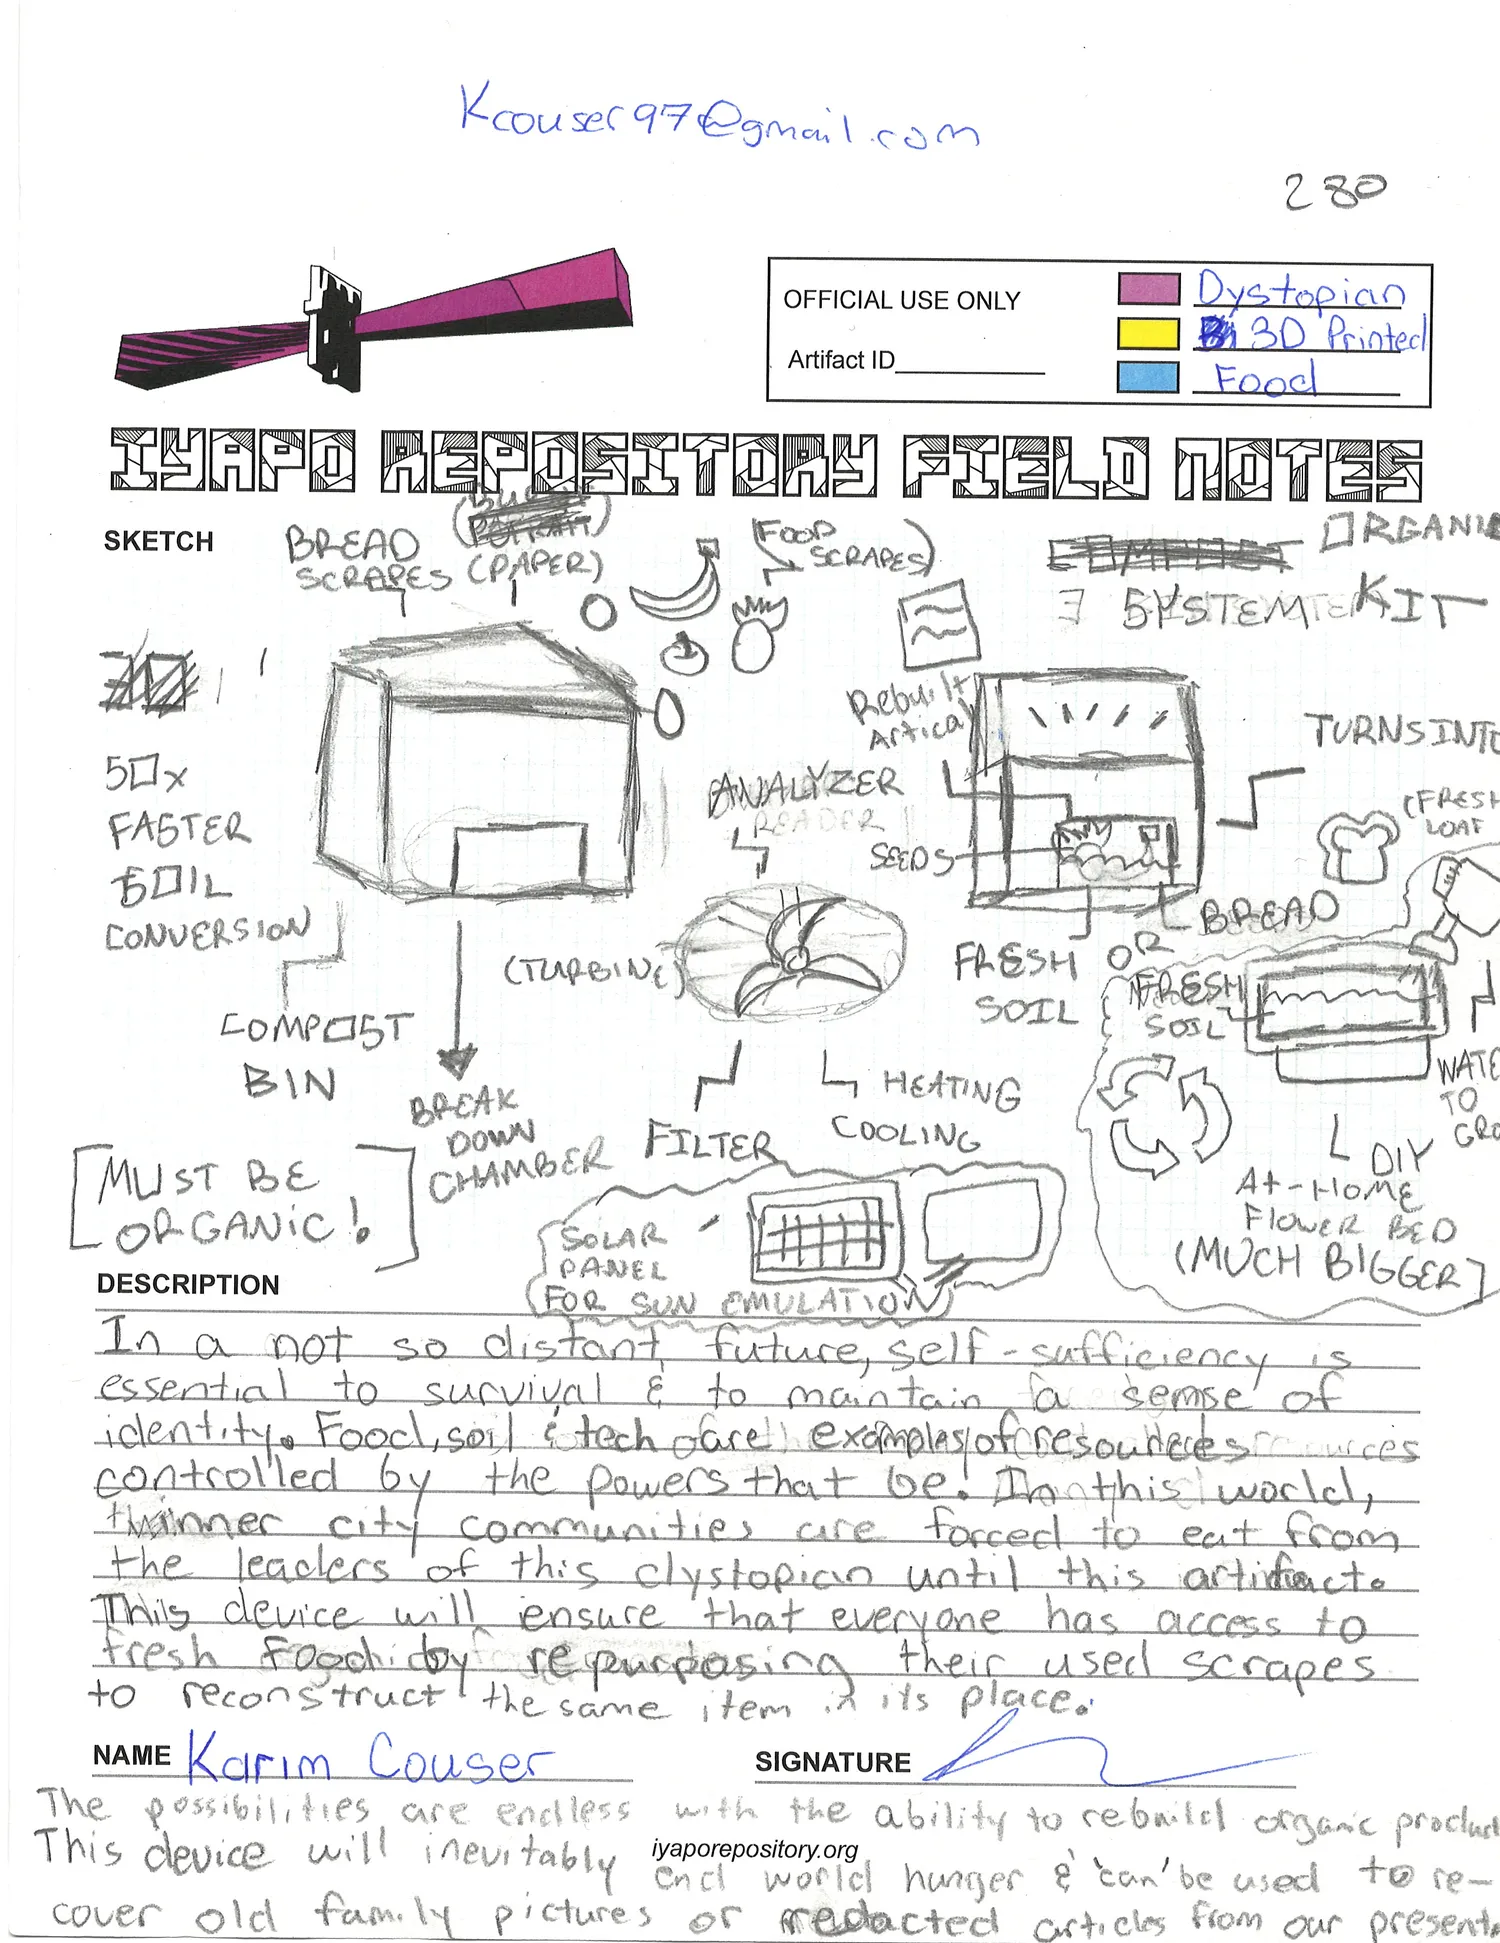 Kcouser97@gmail.com
280
OFFICIAL USE ONLY
Artifact ID
Dystopian
3D Printed
Food
IYAPO REPOSITORY FIELD NOTES
SKETCH
BREAD
SCRAPES
(PAPER)
(FOOD
SCRAPES)
ORGANIC
SYSTEM KIT
50x
FASTER
SOIL
CONVERSION
Rebuilt
Artical
ANALYZER
READER
SEEDS
TURNS INTO
(FRESH
LOAF
BREAD
OR
FRESH
SOIL
FRESH
SOIL
(TURBINE)
COMPOST
BIN
BREAK
DOWN
CHAMBER
FILTER
HEATING
COOLING
WATE
TO
GRO
DIY
At-HOME
FLOWER BED
(MUCH BIGGER]
[MUST BE
ORGANIC!]
SOLAR
PANEL
FOR SUN EMULATION
DESCRIPTION
In a not so distant future, self-sufficiency is
essential to survival & to maintain a sense of
identity. Food, soil & tech are examples of resources
controlled by the powers that be. In this world,
inner city communities are forced to eat from
the leaders of this dystopian until this artifact.
This device will ensure that everyone has access to
fresh food by repurposing their used scrapes
to reconstruct the same item in its place.
NAME Karim Couser
SIGNATURE
The possibilities are endless with the ability to rebuild organic product
This device will inevitably end world hunger & 'can' be used to re-
iyaporepository.org
cover old family pictures or redacted articles from our present.